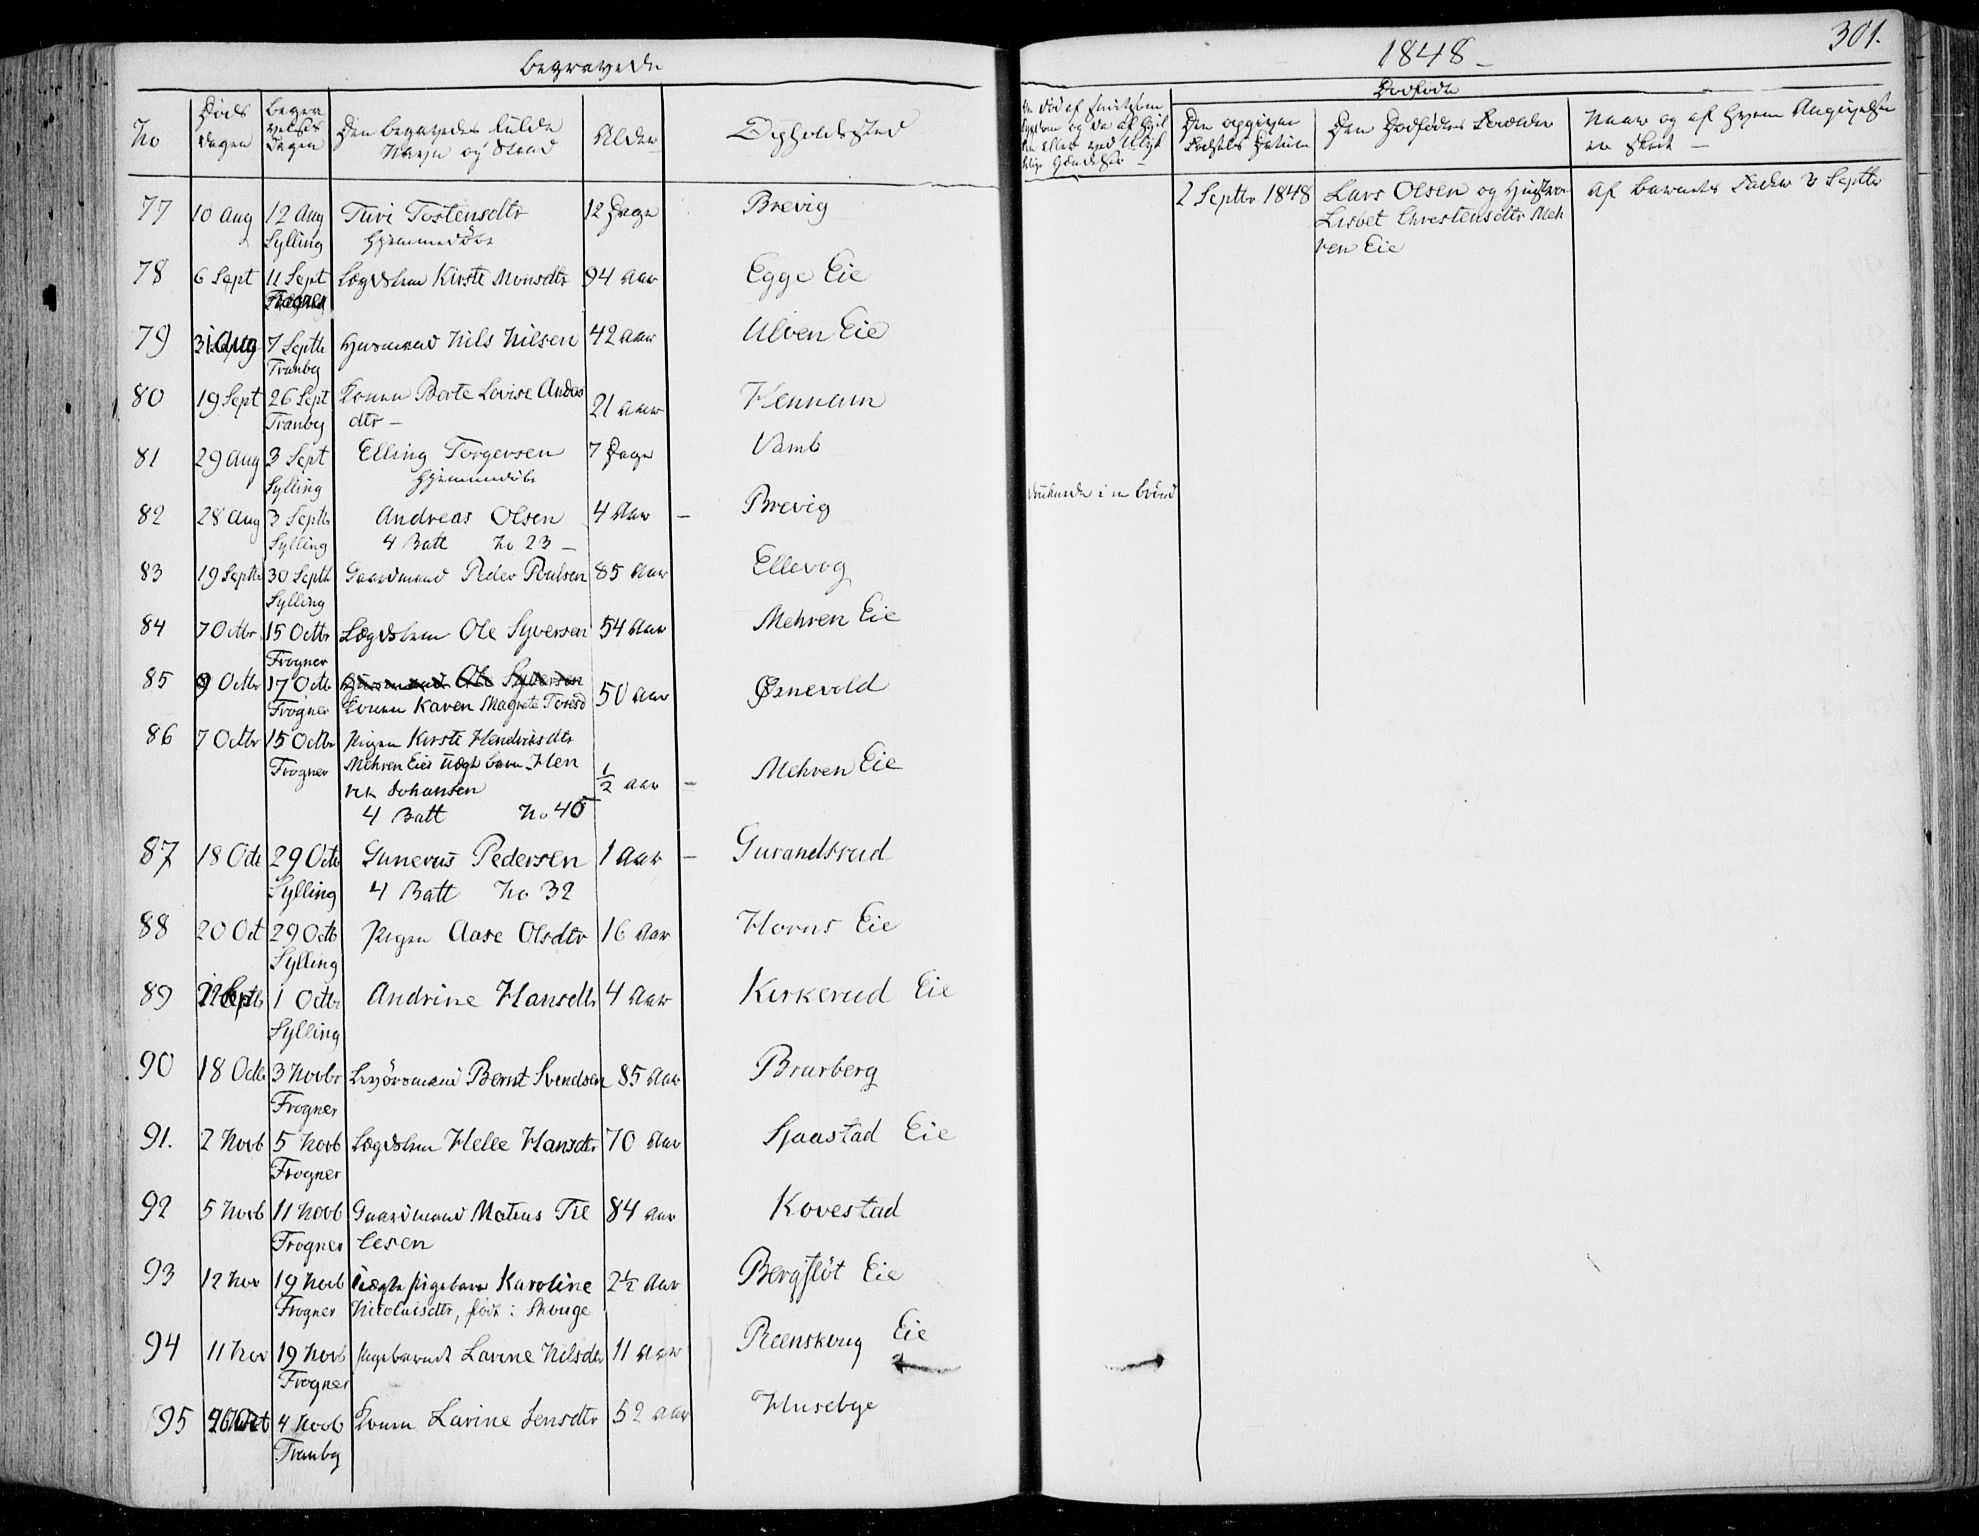 Begravede
1848
301.
No
Døds dagen
Begravelses Dagen
Den begravedes fulde Navn og Stand
Alder
Opholdssted
Dødfødte
Den Dødfødtes Forældre
77 10 Aug 12 Aug Turi Tostensdtr 12 Dage Brevig
Sylling Hjemmedøbt
78 6 Sept 11 Sept Lægdslem Kirste Monsdtr 94 Aar Egge Eie
Frogner
79 31 Aug 7 Septb Husmand Nils Nilsen 42 Aar Ulven Eie
Tranby
80 19 Sept 26 Sept Konen Berte Lovise Anders 21 Aar Hennum
Tranby dtr
81 29 Aug 3 Sept Elling Torgersen 7 Dage Vamb
Sylling Hjemmedøbt
82 28 Aug 3 Septbr Andreas Olsen 4 Aar – Brevig druknede i en brønd
Sylling 4 Batt No 23 –
83 19 Septb 30 Septb Gaardmand Peder Poulsen 85 Aar Ellevog
Sylling
84 7 Octbr 15 Octbr Lægdslem Ole Syversen 54 Aar Mehren Eie
Frogner
85 9 Octbr 17 Octb Husmand Ole Syversen 50 Aar Øsnevold
Frogner Konen Karen Magrete Toresd
86 7 Octbr 15 Octbr Pigen Kirste Hendriksdtr
Frogner Mehren Eies uægte barn Hen
rik Johansen ½ Aar – Mehren Eie
4 Batt No 45
87 18 Octb 29 Octb Gunerus Pedersen 1 Aar – Gurandsrud
Sylling 4 Batt No 32
88 20 Oct 29 Octb Pigen Aase Olsdtr 16 Aar Horns Eie
Sylling
89 1 Octbr Andrine Hansdtr 4 Aar Kirkerud Eie
Sylling
90 18 Octb 3 Novbr Bernt Svendsen 85 Aar Brurberg
Frogner
91. 2 Novb 5 Novb Lægdslem Helle Hansdtr 70 Aar Sjaastad Eie
Frogner
92 5 Novb 11 Novb Gaardmand Matius Til 84 Aar Kovestad
Frogner lesen
93 12 Nov 19 Novb Uægte Pigebarn Karoline 2½ Aar Bergfløt Eie
Frogner Nicolaisdtr, født i Skouge
94 11 Nov 19 Novb Pigebarnet Lavine Nilsdtr 11 Aar Reenskoug Eie
Frogner
95 4 Novb Konen Larine Jensdtr 52 Aar Husebye
Tranby
2 Septbr 1848
Lars Olsen og Hustru
Lisbet Chrestensdtr Meh
ren Eie
Af barnets Fader 3 Septbr